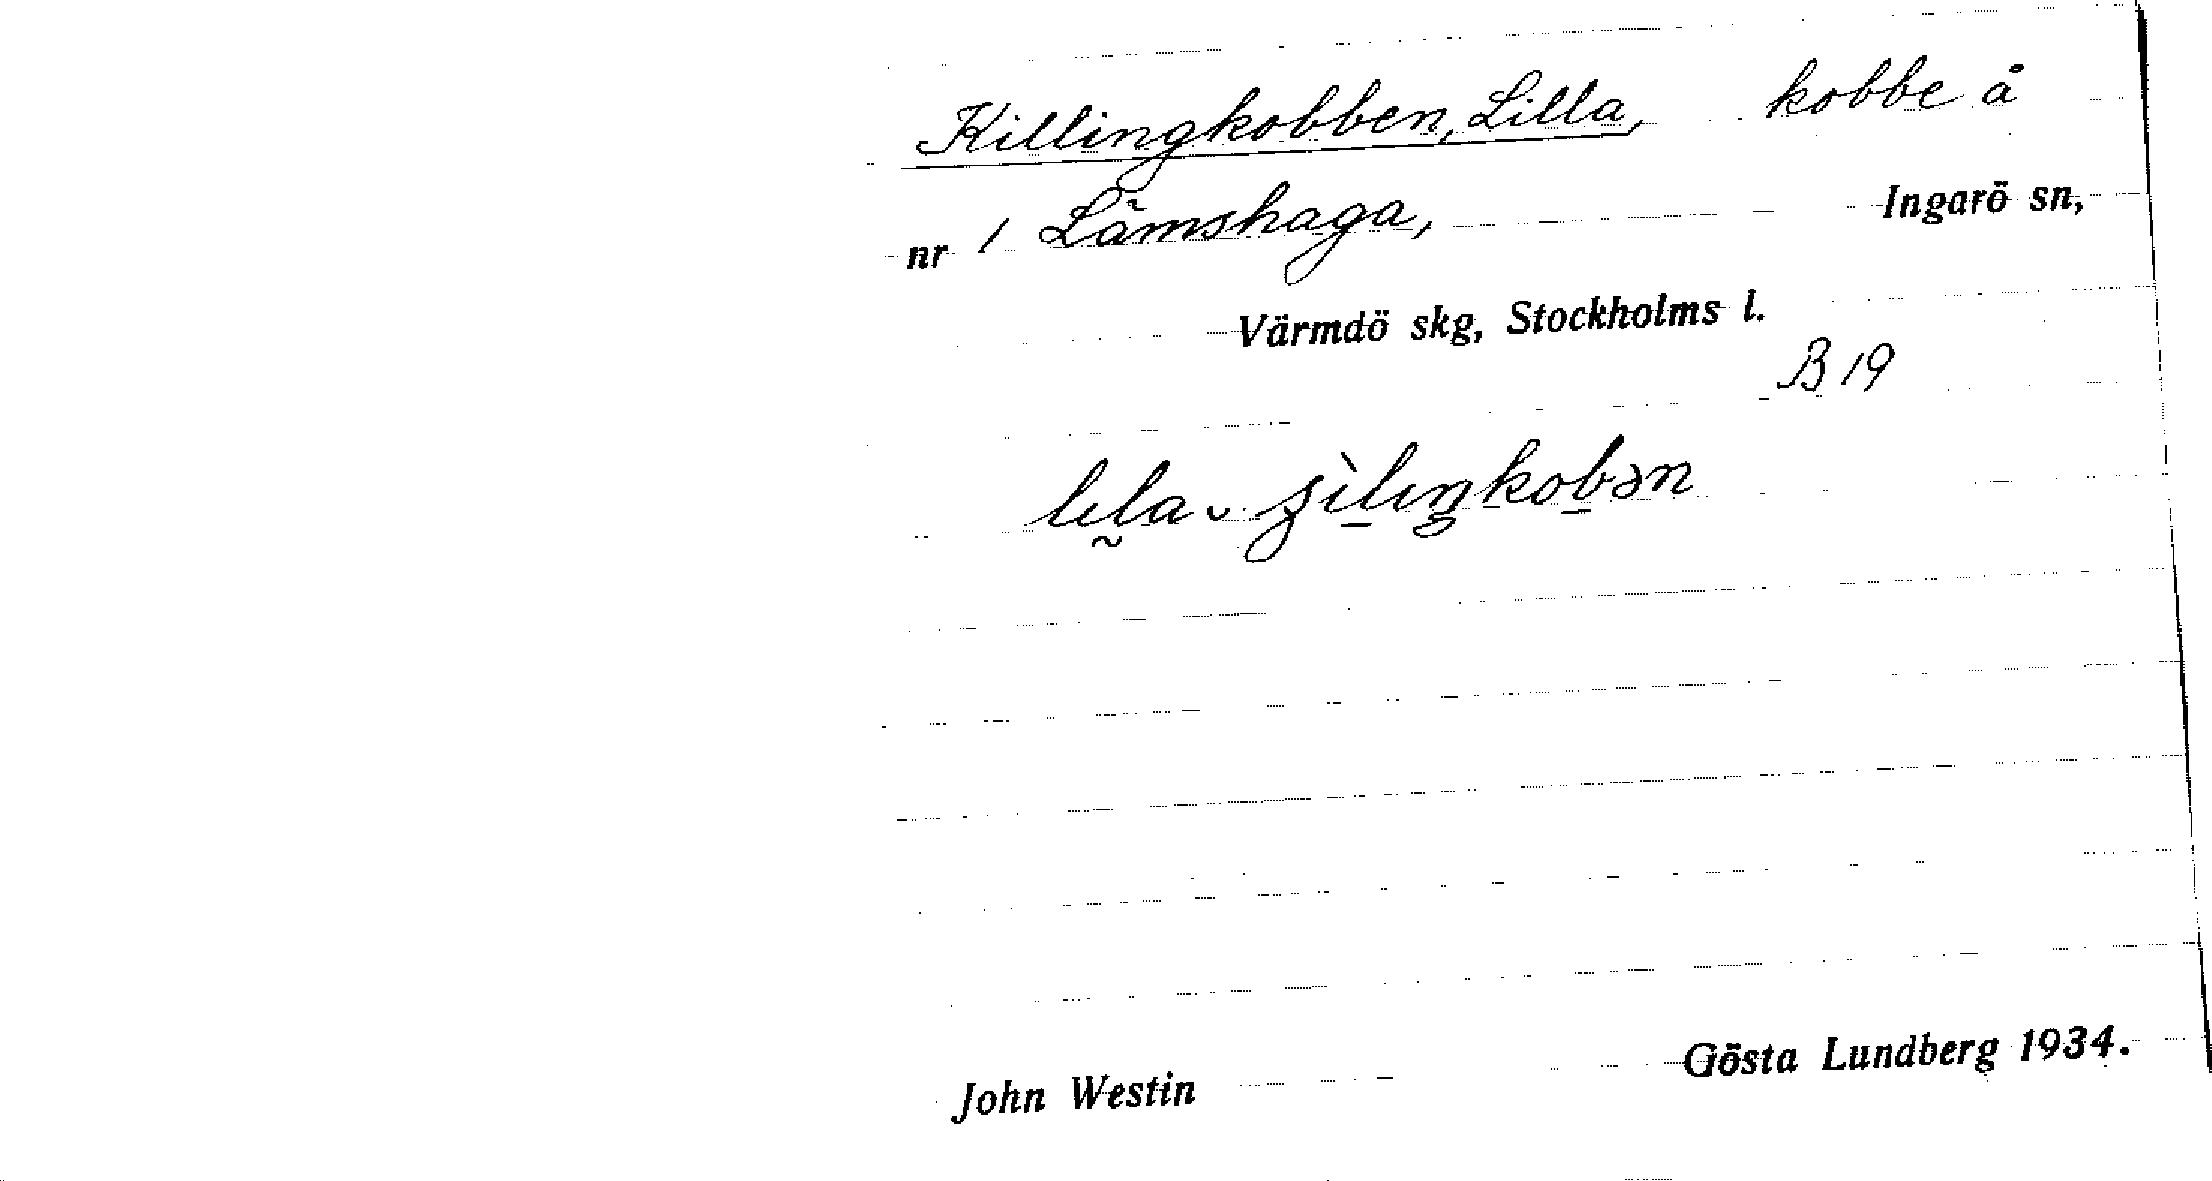 Killingkobben, Lilla, kobbe å
nr 1 Lämshaga, Ingarö sn,
Värmdö skg, Stockholms l.
B 19
John Westin Gösta Lundberg 1934.